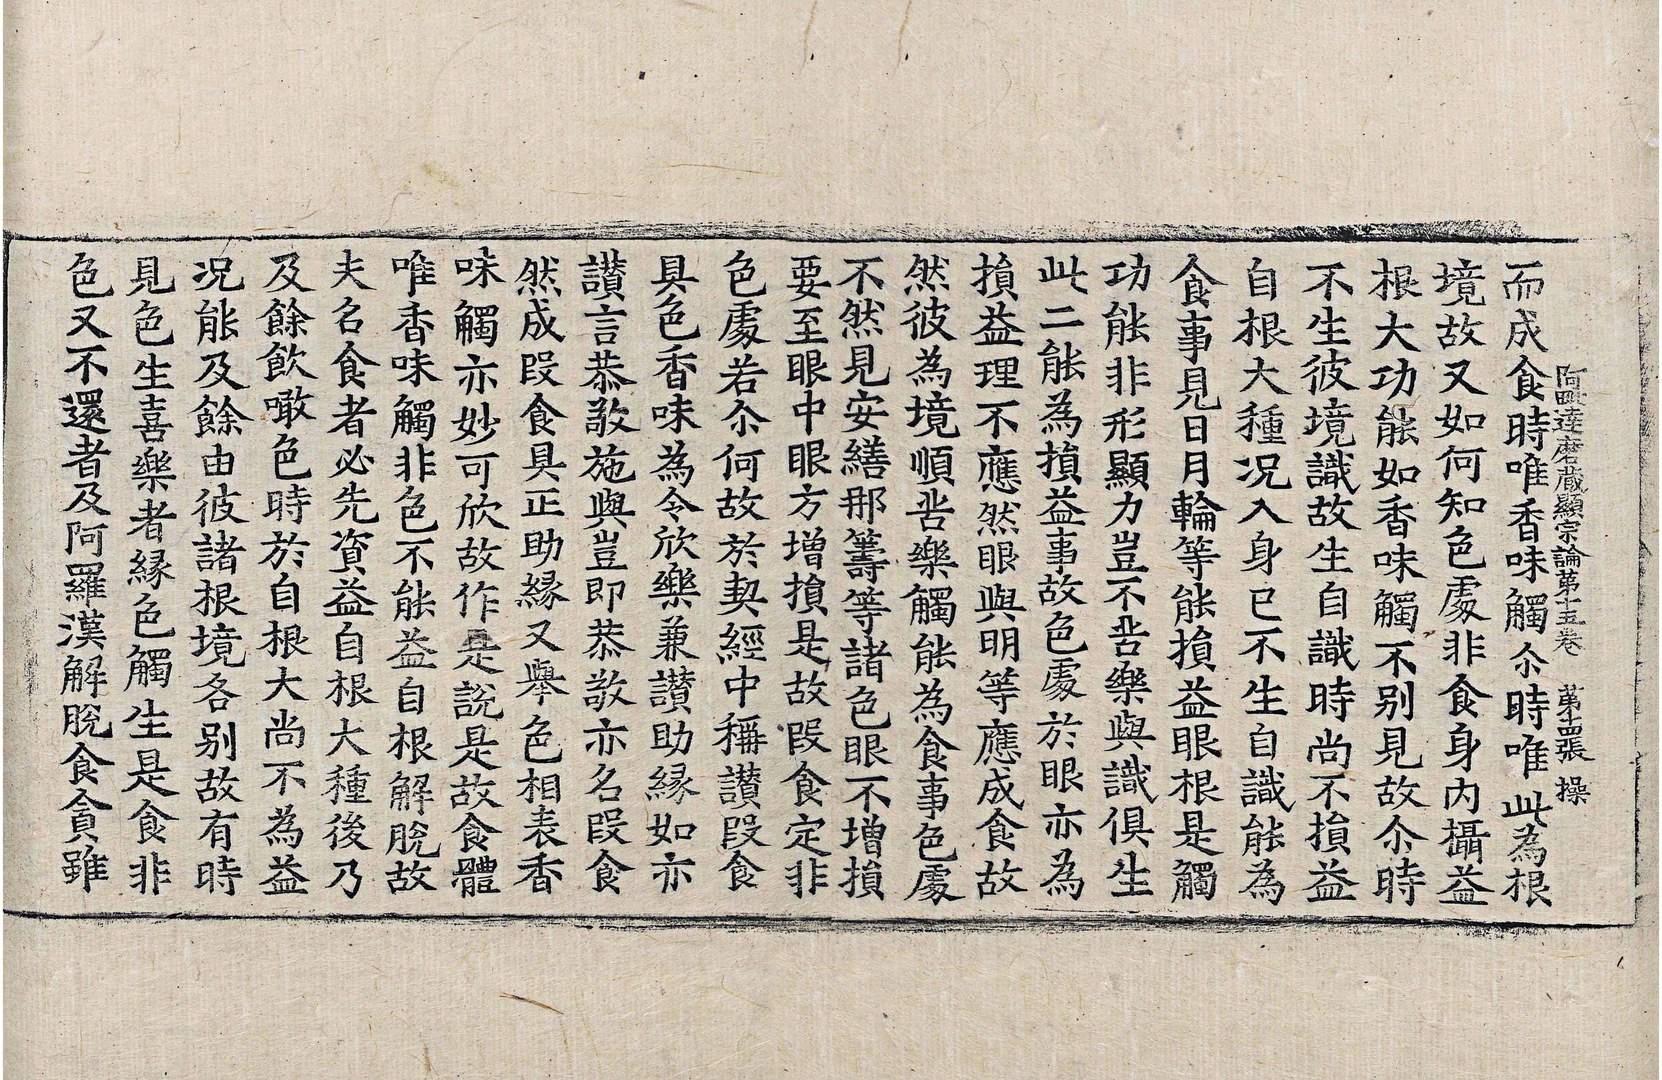 阿毗達磨藏顯宗論第十五卷　第十四張　操
而成食時唯香味觸尒時唯此為根
境故又如何知色處非食身內攝益
根大功能如香味觸不别見故尒時
不生彼境識故生自識時尚不損益
自根大種况入身已不生自識能為
食事見日月輪等能損益眼根是觸
功能非形顯力豈不苦樂與識俱生
此二能為損益事故色處於眼亦為
損益理不應然眼與明等應成食故
然彼為境順苦樂觸能為食事色處
不然見安繕那籌等諸色眼不增損
要至眼中眼方增損是故段食定非
色處若尒何故於契經中稱讚段食
具色香味為令欣樂兼讚助緣如亦
讚言恭敬施與豈即恭敬亦名段食
然成段食具正助緣又舉色相表香
味觸亦妙可欣故作是說是故食體
唯香味觸非色不能益自根解脫故
夫名食者必先資益自根大種後乃
及餘飲噉色時於自根大尚不為益
况能及餘由彼諸根境各别故有時
見色生喜樂者緣色觸生是食非
色又不還者及阿羅漢解脫食貪雖